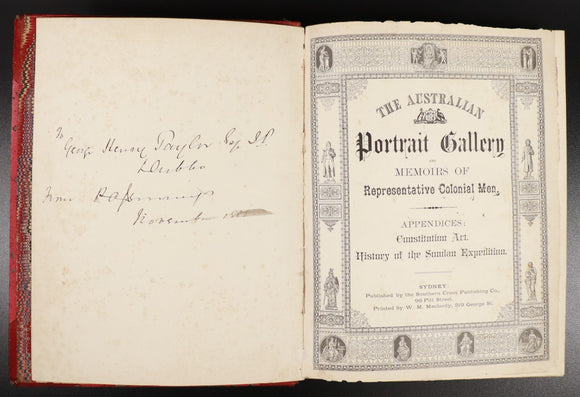 To
George Henry Taylor Esq J.P.
Dubbo
From
November
THE AUSTRALIAN
Portrait Gallery
AND
MEMOIRS OF
Representative Colonial Men.
APPENDICES:
Constitution Act.
History of the Soudan Expedition.
SYDNEY
Published by the Southern Cross Publishing Co.,
96 Pitt Street.
Printed by W. M. Maclardy, 319 George St.